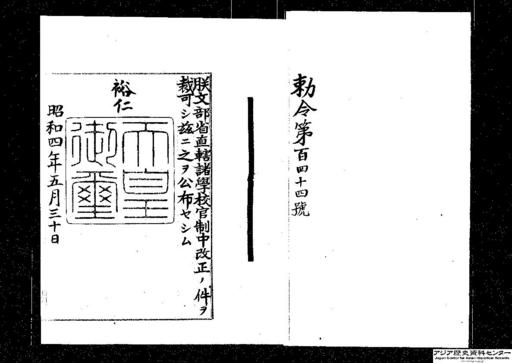 勅令第百四十四號
朕文部省直轄諸學校官制中改正ノ件ヲ
裁可シ茲ニ之ヲ公布セシム
裕仁
天皇
御璽
昭和四年五月三十日
アジア歴史資料センター
Japan Center for Asian Historical Records